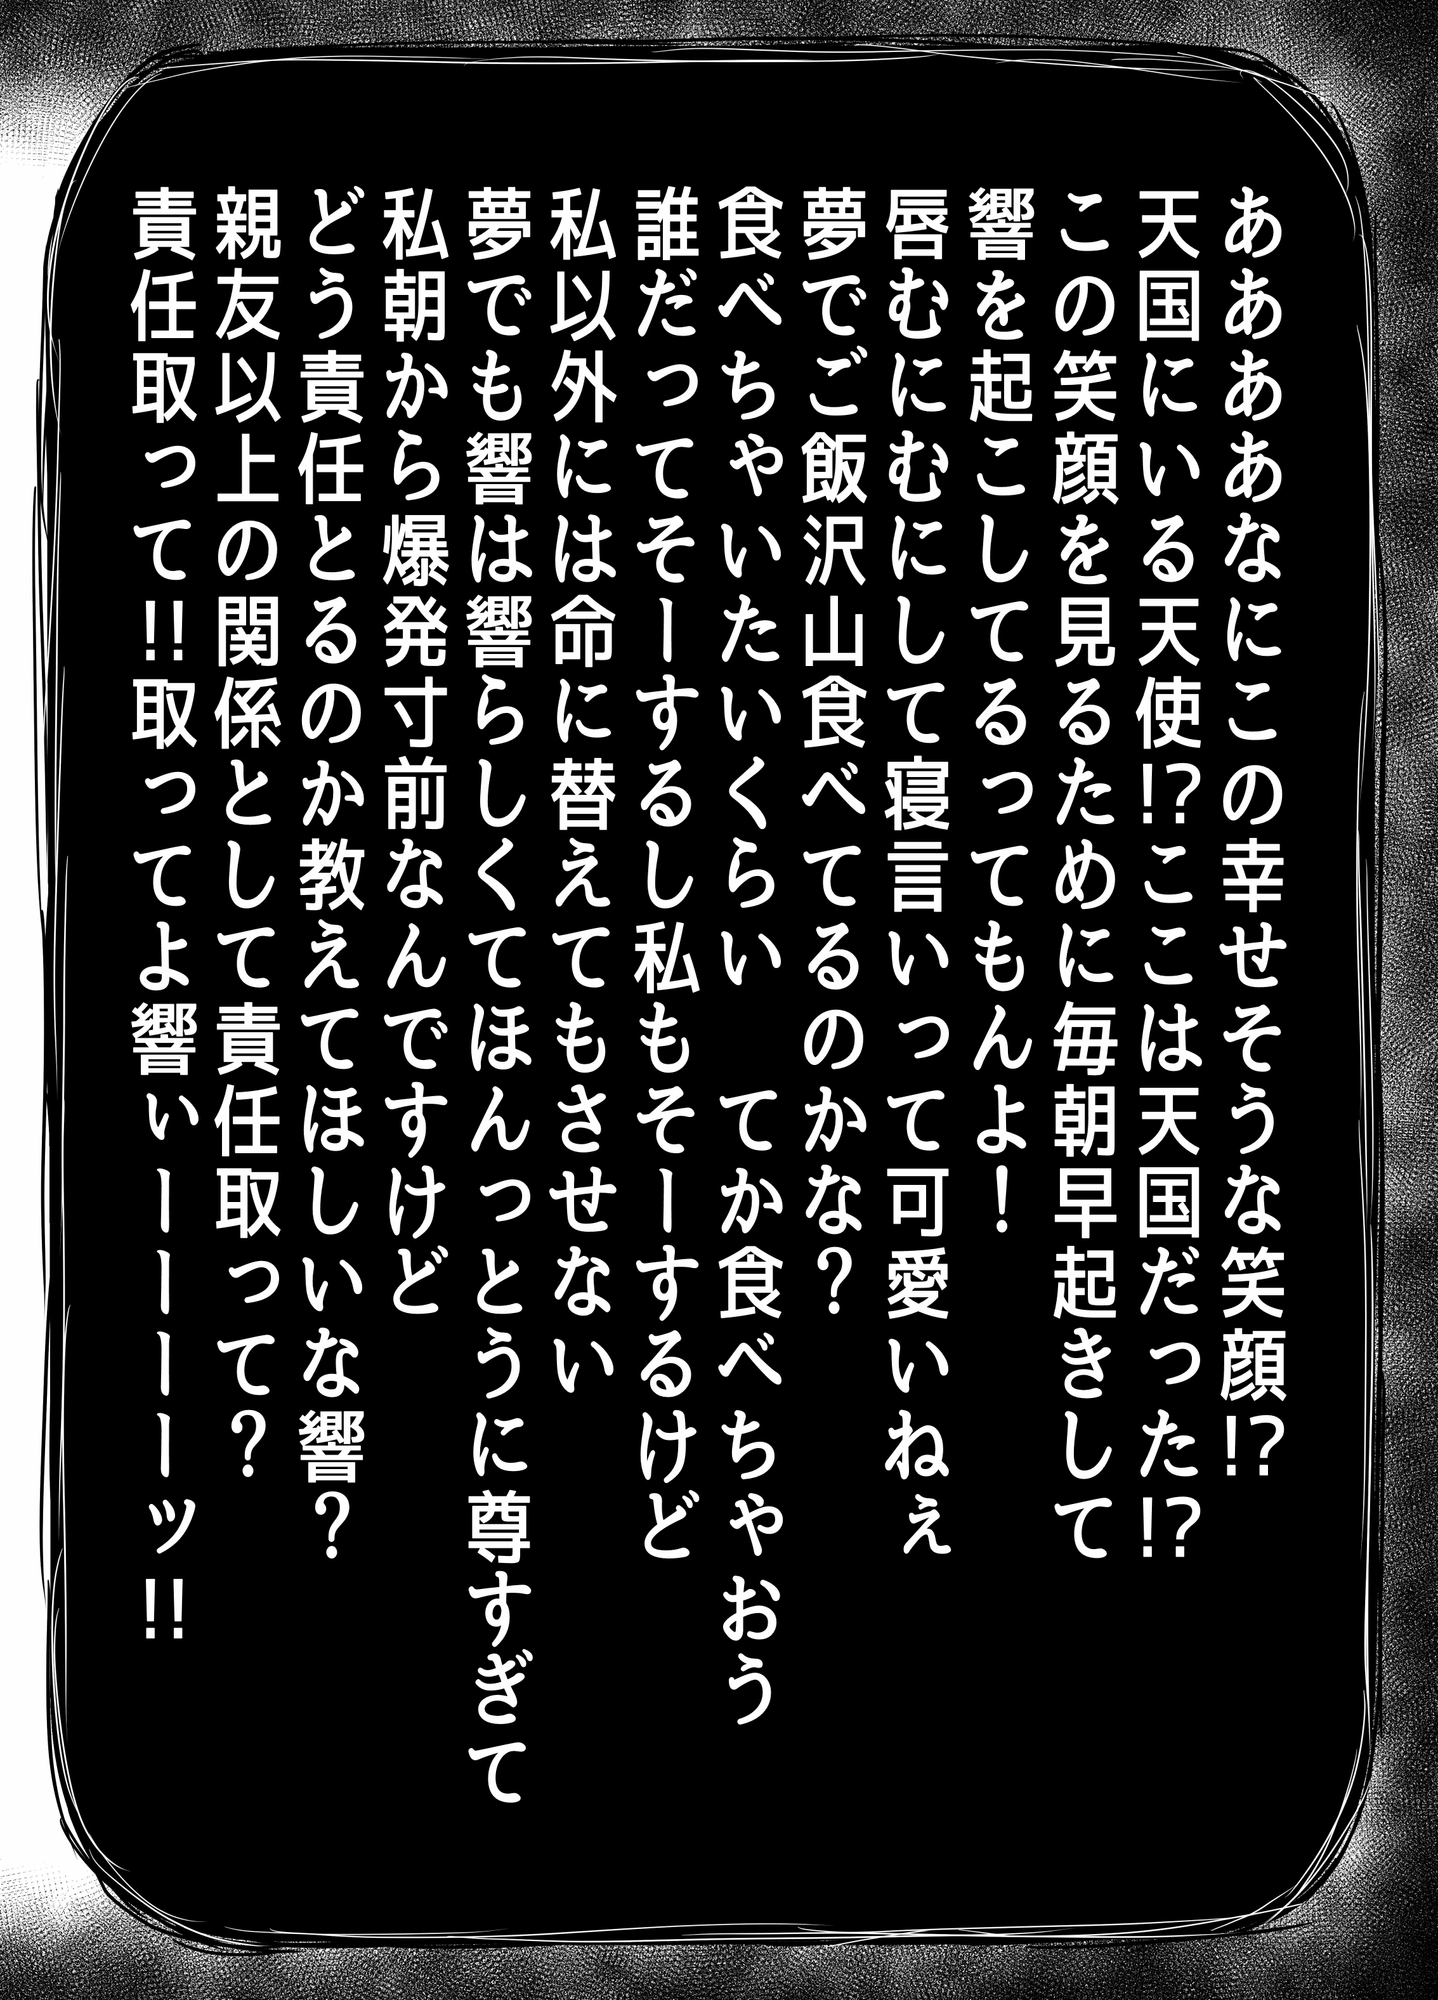 あああああなにこの幸せそうな笑顔!?
天国にいる天使!?ここは天国だった!?
この笑顔を見るために毎朝早起きして
響を起こしてるってもんよ!
唇むにむにして寝言いって可愛いねぇ
夢でご飯沢山食べてるのかな?
食べちゃいたいくらい　てか食べちゃおう
誰だってそーするし私もそーするけど
私以外には命に替えてもさせない
夢でも響は響らしくてほんっとうに尊すぎて
私朝から爆発寸前なんですけど
どう責任とるのか教えてほしいな響?
親友以上の関係として責任取って?
責任取って!!取ってよ響ぃーーーーッ!!